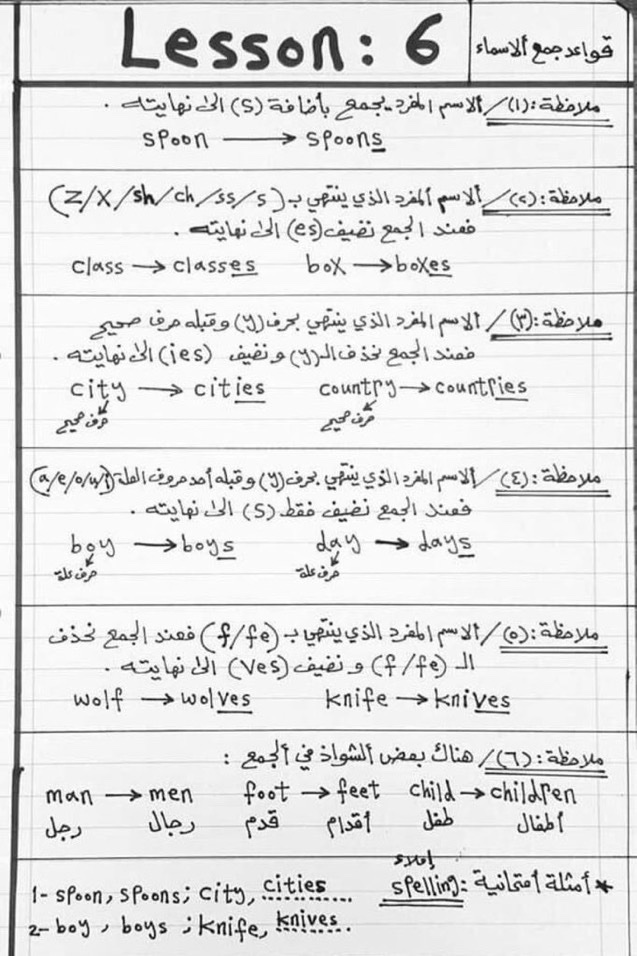 Lesson: 6
قواعد جمع الاسماء
ملاحظة:(١)/ الاسم المفرد يجمع بأضافة (s) الى نهايته.
spoon → spoons
ملاحظة:(٢)/ الاسم المفرد الذي ينتهي بـ (z/x/sh/ch/ss/s)
فعند الجمع نضيف (es) الى نهايته.
class → classes box → boxes
ملاحظة:(٣)/ الاسم المفرد الذي ينتهي بحرف (y) وقبله حرف صحيح
فعند الجمع نحذف الـ(y) ونضيف (ies) الى نهايته.
city → cities country → countries
حرف صحيح حرف صحيح
ملاحظة:(٤)/ الاسم المفرد الذي ينتهي بحرف (y) وقبله أحد حروف العلة (a/e/o/u/i)
فعند الجمع نضيف فقط (s) الى نهايته.
boy → boys day → days
حرف علة حرف علة
ملاحظة:(٥)/ الاسم المفرد الذي ينتهي بـ (f/fe) فعند الجمع نحذف
الـ (f/fe) ونضيف (ves) الى نهايته.
wolf → wolves knife → knives
ملاحظة:(٦)/ هناك بعض الشواذ في الجمع:
man → men foot → feet child → children
رجل رجال قدم أقدام طفل أطفال
إملاء
* أمثلة أمتحانية: spelling
1- spoon, spoons; city, cities
2- boy, boys; knife, knives.